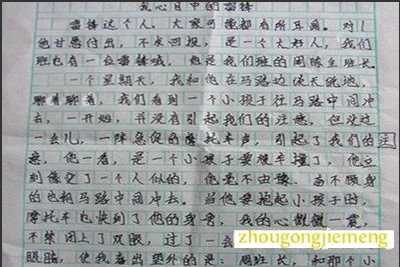 我心目中的雷锋
雷锋这个人,大家可能都有所耳闻。对人
他甘愿付出,不求回报,是一个大好人,我们
班也有一位雷锋哦,他是我们班的周陈立班长。
一个星期天,我和他在马路边谈天说地,
聊着聊着,我们看到一个小孩子往马路中间冲
去,一开始,并没有引起我们的注意,但没过
一会儿,一阵急促的摩托车声,引起了我们的注
意,他一看,是一个小孩子要被车撞了,他立
刻像变了一个人似的,他毫不由豫、奋不顾身
的也朝马路中间冲去。当他要抱起小孩子时,
摩托车也快到了他的身旁,我的心惴惴一震,
不禁闭上了双眼,过了一会
眼睛,使我喜出望外的是:周班长,和那个小
zhougongjiemeng